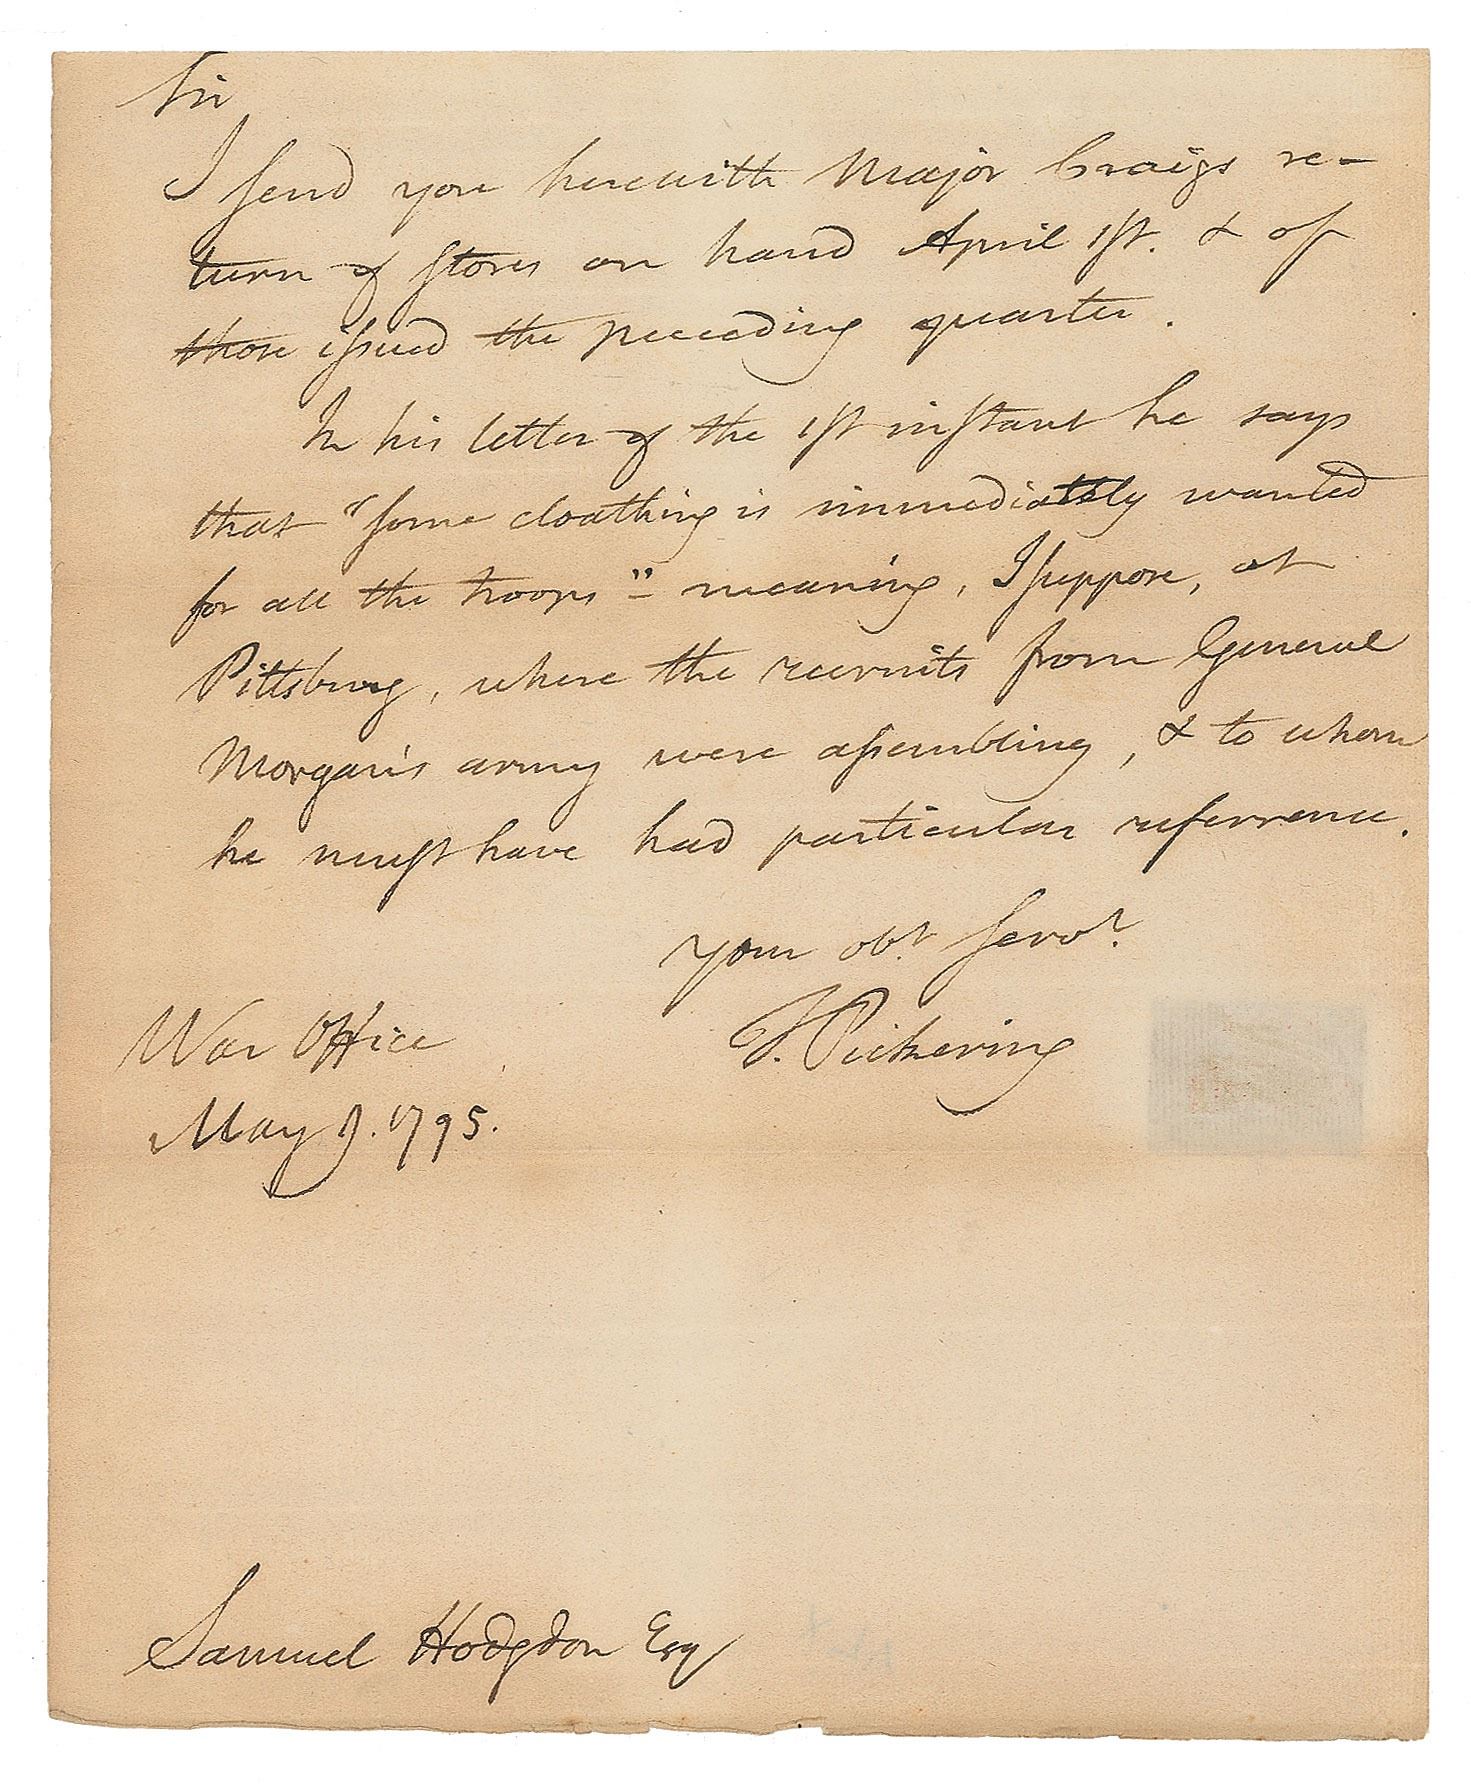 Sir
I send you herewith Major Craigs re-
turn of stores on hand April 1st. & of
those issued the preceeding quarter.
In his letter of the 1st instant he says
that "some cloathing is immediately wanted
for all the troops" - meaning, I suppose, at
Pittsburg, where the recruits from General
Morgan's army were assembling, & to whom
he must have had particular referrence.
Your obt. servt.
T. Pickering
War Office
May 9. 1795.
Samuel Hodgdon Esq